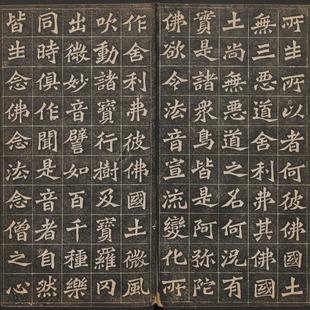 所生所以者何彼佛國土
無三惡道舍利弗其佛國
土尚無惡道之名何況有
實是諸衆鳥皆是阿弥陀
佛欲令法音宣流變化所
作舍利弗彼佛國土微風
吹動諸寶行樹及寶羅网
出微妙音譬如百千種樂
同時俱作聞是音者自然
皆生念佛念法念僧之心